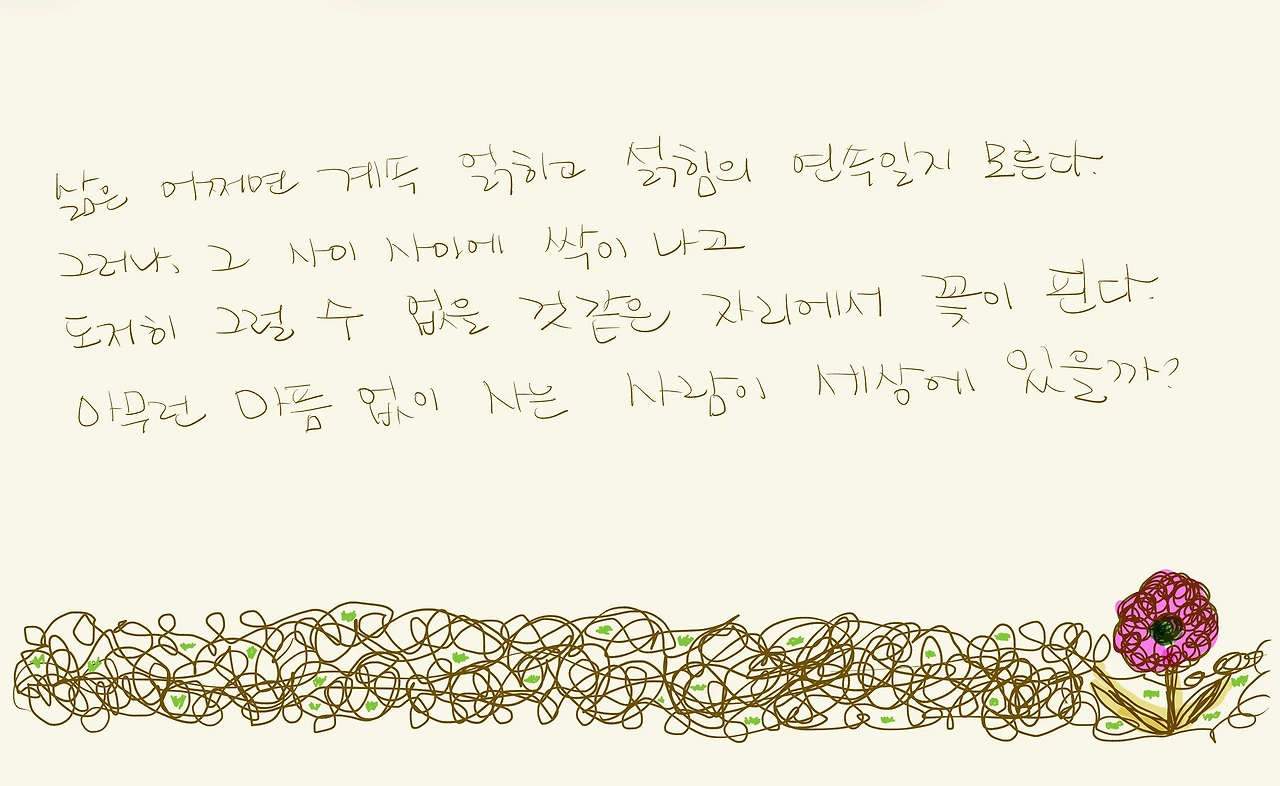 삶은 어쩌면 계속 얽히고 설힘의 연속일지 모른다.
그러나, 그 사이 사이에 싹이 나고
도저히 그럴 수 없을 것같은 자리에서 꽃이 핀다.
아무런 아픔 없이 사는 사람이 세상에 있을까?